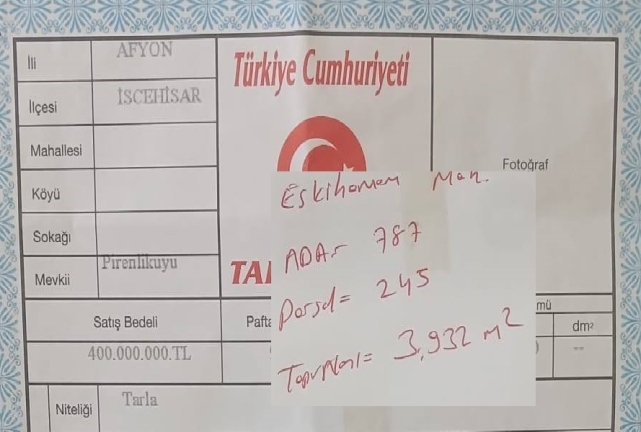 İli AFYON
Türkiye Cumhuriyeti
İlçesi İSCEHİSAR
Mahallesi
Fotoğraf
Köyü
Eskihamam Mah.
Sokağı
ADA= 787
Mevkii Pirenlikuyu
TA
Parsel= 245
mü
Satış Bedeli
Pafta
dm²
400.000.000.TL
--
Tapu Alanı= 3,932 m²
Niteliği Tarla